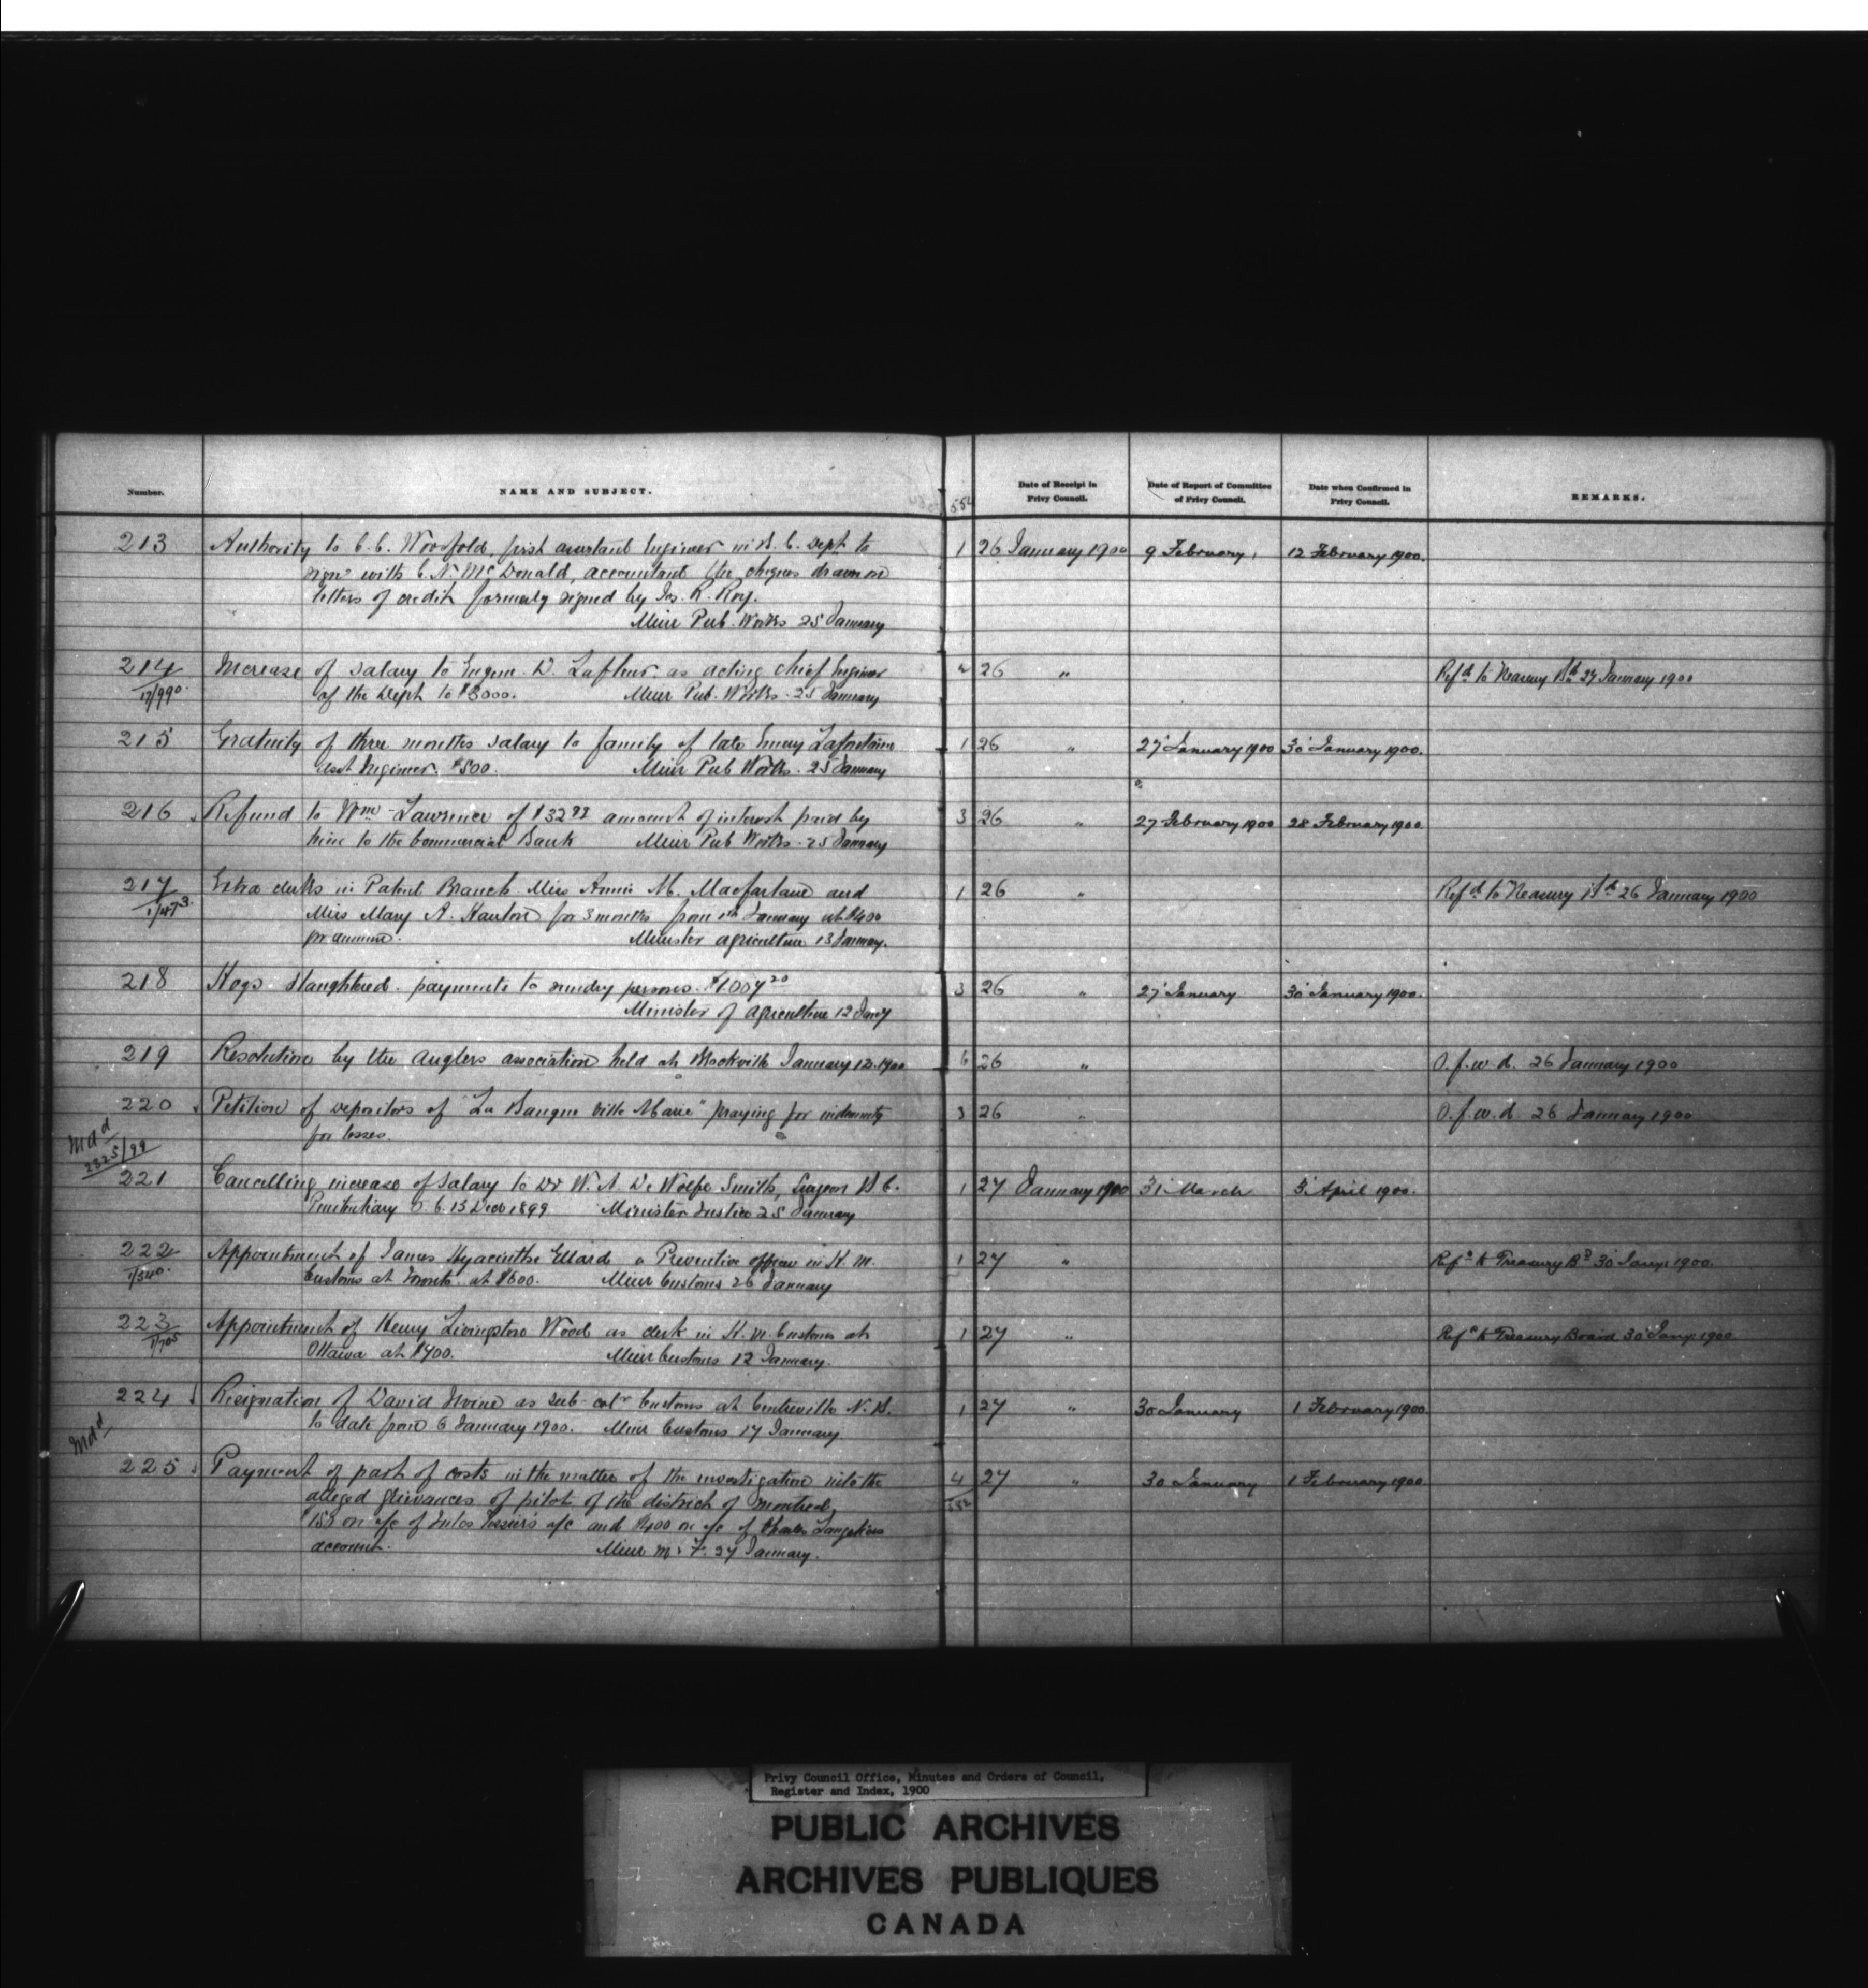 Number. NAME AND SUBJECT. 554 Date of Receipt in Privy Council. Date of Report of Committee of Privy Council. Date when Confirmed in Privy Council. REMARKS.
213 Authority to C. C. Worsfold, first assistant Engineer in B. C. Dept to 1 26 January 1900 9 February, 12 February 1900.
sign with C. N. McDonald, accountant the cheques drawn on
letters of credit formerly signed by Jas. R. Roy.
Minr Pub. Works 25 January
214 Increase of salary to Eugene D. Lafleur as acting chief Engineer 26 " Refd to Treasury Bd 29 January 1900
17/990. of the Dept to $3000. Minr Pub. Works. 25 January
215 Gratuity of three months salary to family of late Emery Lafontaine 1 26 " 27 January 1900 30 January 1900.
asst Engineer. $500. Minr Pub Works. 25 January
216 Refund to Wm Lawrence of amount of interest paid by 3 26 " 27 February 1900 28 February 1900.
him to the Commercial Bank Minr Pub Works. 25 January
217 Extra clerks in Patent Branch. Miss Annie M. Macfarlane and 1 26 " Refd to Treasury Bd 26 January 1900
Miss Mary A. for 3 months from January at $400
per annum. Minister agriculture 13 January.
218 Hogs slaughtered. payments to sundry persons. $1.007 20 3 26 " 27 January 30 January 1900.
Minister of agriculture 12 Jany
219 Resolution by the anglers association held at Brockville January 12. 1900 6 26 " O. f. w. d. 26 January 1900
220 Petition of depositors of "La Banque Ville Marie" praying for indemnity 3 26 " O. f. w. d. 26 January 1900
for losses.
2825/99
221 Cancelling increase of salary to Dr W. A. De Wolfe Smith, Surgeon B. C. 1 27 January 1900 31 March 5 April 1900.
Penitentiary O. C. 13 Decr 1899 Minister Justice 25 January
222 Appointment of James Hyacinthe Ellard a Preventive officer in H. M. 1 27 " Refd to Treasury Bd 30 Jany 1900.
1/540. Customs at Toronto at $600. Minr Customs 26 January
223 Appointment of Henry Livingstone Wood as clerk in H. M. Customs at 1 27 " Refd to Treasury Board 30 Jany 1900.
1/705 Ottawa at $700. Minr Customs 12 January.
224 Resignation of David Irvine as sub-colr Customs at Centreville N. B. 1 27 " 30 January 1 February 1900
to date from 6 January 1900. Minr Customs 17 January
225 Payment of part of costs in the matter of the investigation into the 4 27 " 30 January 1 February 1900
alleged grievances of pilots of the district of Montreal,
$150 on a/c of Jules Tessier's a/c and $400 on a/c of Charles Langelier's 582
account. Minr M. & F. 27 January.
Privy Council Office, Minutes and Orders of Council,
Register and Index, 1900
PUBLIC ARCHIVES
ARCHIVES PUBLIQUES
CANADA